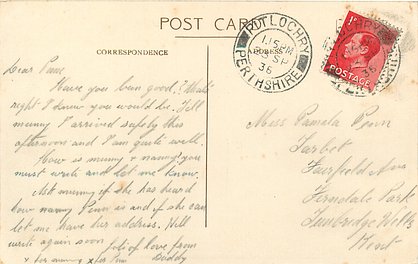 POST CARD
CORRESPONDENCE
ADDRESS
PITLOCHRY
1.15 PM
SP
36
PERTHSHIRE
1D
POSTAGE
Dear Pam
Have you been good? That's
right I knew you would be. Tell
mumy I arrived safely this
afternoon and I am quite well.
How is mumy & nanny? you
must write and let me know.
Ask mumy if she has heard
how nanny Penn is and if she can
let me have her address. Will
write again soon lots of love from
x for mumy x for Pam Daddy
Miss Pamela Penn
Tarbet
Fairfield Ave
Ferndale Park
Tunbridge Wells
Kent